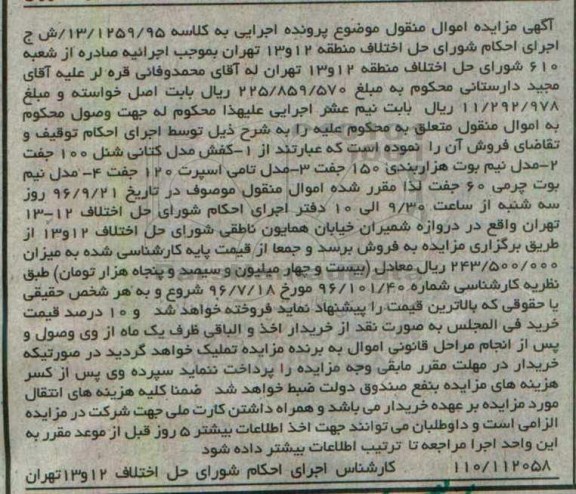 آگهی مزایده اموال منقول موضوع پرونده اجرایی به کلاسه ۱۳/۱۲۵۹/۹۵/ش ج
اجرای احکام شورای حل اختلاف منطقه ۱۲و۱۳ تهران بموجب اجرائیه صادره از شعبه
۶۱۰ شورای حل اختلاف منطقه ۱۲و۱۳ تهران له آقای محمدوفائی قره لر علیه آقای
مجید دارستانی محکوم به مبلغ ۲۲۵/۸۵۹/۵۷۰ ریال بابت اصل خواسته و مبلغ
۱۱/۲۹۲/۹۷۸ ریال بابت نیم عشر اجرایی علیهذا محکوم له جهت وصول محکوم
به اموال منقول متعلق به محکوم علیه را به شرح ذیل توسط اجرای احکام توقیف و
تقاضای فروش آن را نموده است که عبارتند از ۱-کفش مدل کتانی شنل ۱۰۰ جفت
۲-مدل نیم بوت هزاربندی ۱۵۰ جفت ۳-مدل تامی اسپرت ۱۲۰ جفت ۴- مدل نیم
بوت چرمی ۶۰ جفت لذا مقرر شده اموال منقول موصوف در تاریخ ۹۶/۹/۲۱ روز
سه شنبه از ساعت ۹/۳۰ الی ۱۰ دفتر اجرای احکام شورای حل اختلاف ۱۲-۱۳
تهران واقع در دروازه شمیران خیابان همایون ناطقی شورای حل اختلاف ۱۲و۱۳ از
طریق برگزاری مزایده به فروش برسد و جمعا از قیمت پایه کارشناسی شده به میزان
۲۴۳/۵۰۰/۰۰۰ ریال معادل (بیست و چهار میلیون و سیصد و پنجاه هزار تومان) طبق
نظریه کارشناسی شماره ۹۶/۱۰۱/۴۰ مورخ ۹۶/۷/۱۸ شروع و به هر شخص حقیقی
یا حقوقی که بالاترین قیمت را پیشنهاد نماید فروخته خواهد شد و ۱۰ درصد قیمت
خرید فی المجلس به صورت نقد از خریدار اخذ و الباقی ظرف یک ماه از وی وصول و
پس از انجام مراحل قانونی اموال به برنده مزایده تملیک خواهد گردید در صورتیکه
خریدار در مهلت مقرر مابقی وجه مزایده را پرداخت ننماید سپرده وی پس از کسر
هزینه های مزایده بنفع صندوق دولت ضبط خواهد شد ضمنا کلیه هزینه های انتقال
مورد مزایده بر عهده خریدار می باشد و همراه داشتن کارت ملی جهت شرکت در مزایده
الزامی است و داوطلبان می توانند جهت اخذ اطلاعات بیشتر ۵ روز قبل از موعد مقرر به
این واحد اجرا مراجعه تا ترتیب اطلاعات بیشتر داده شود
۱۱۰/۱۱۲۰۵۸ کارشناس اجرای احکام شورای حل اختلاف ۱۲و۱۳تهران